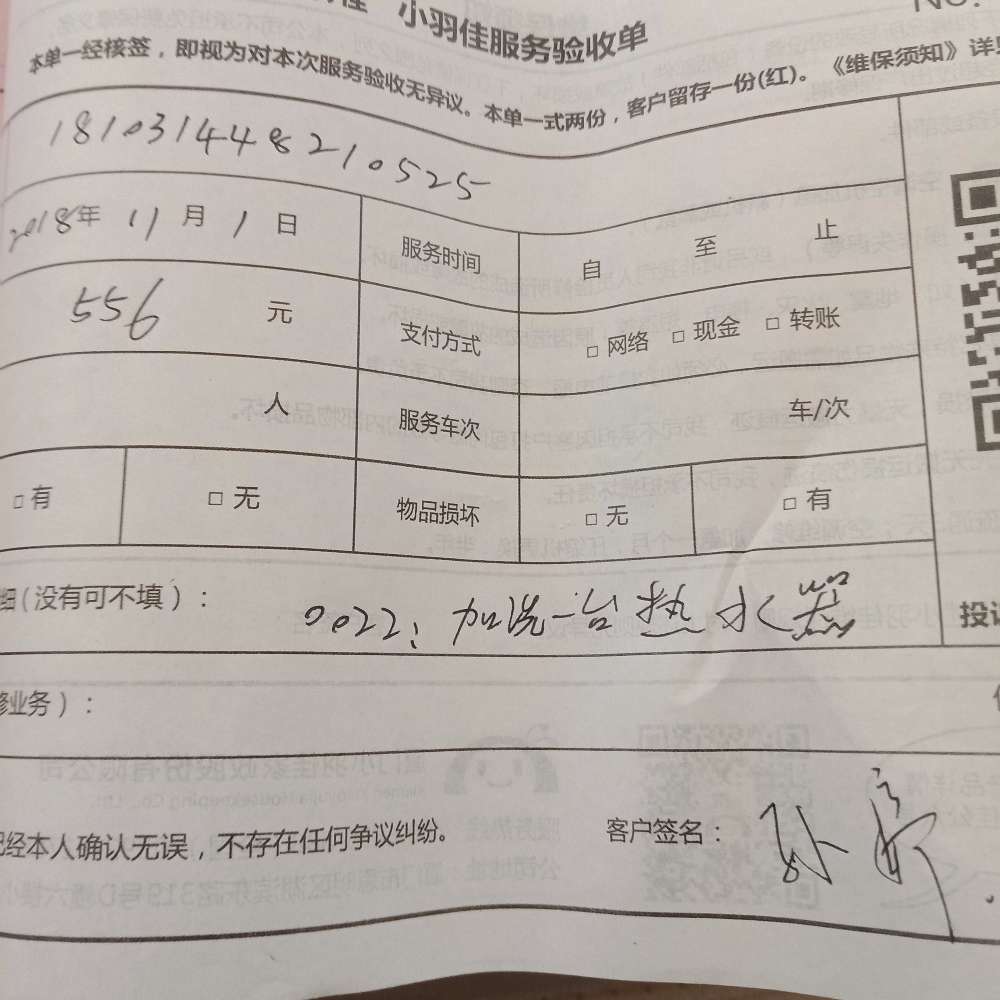 佳 小羽佳服务验收单
NO.
本单一经核签，即视为对本次服务验收无异议。本单一式两份，客户留存一份(红)。《维保须知》详见
181031448210525
2018年 11月 1日 服务时间 自 至 止
556 元 支付方式 □ 网络 □ 现金 □ 转账
人 服务车次 车/次
□ 有 □ 无 物品损坏 □ 无 □ 有
细(没有可不填)： 0022: 加洗一台热水器
投诉
修业务)：
已经本人确认无误，不存在任何争议纠纷。 客户签名：